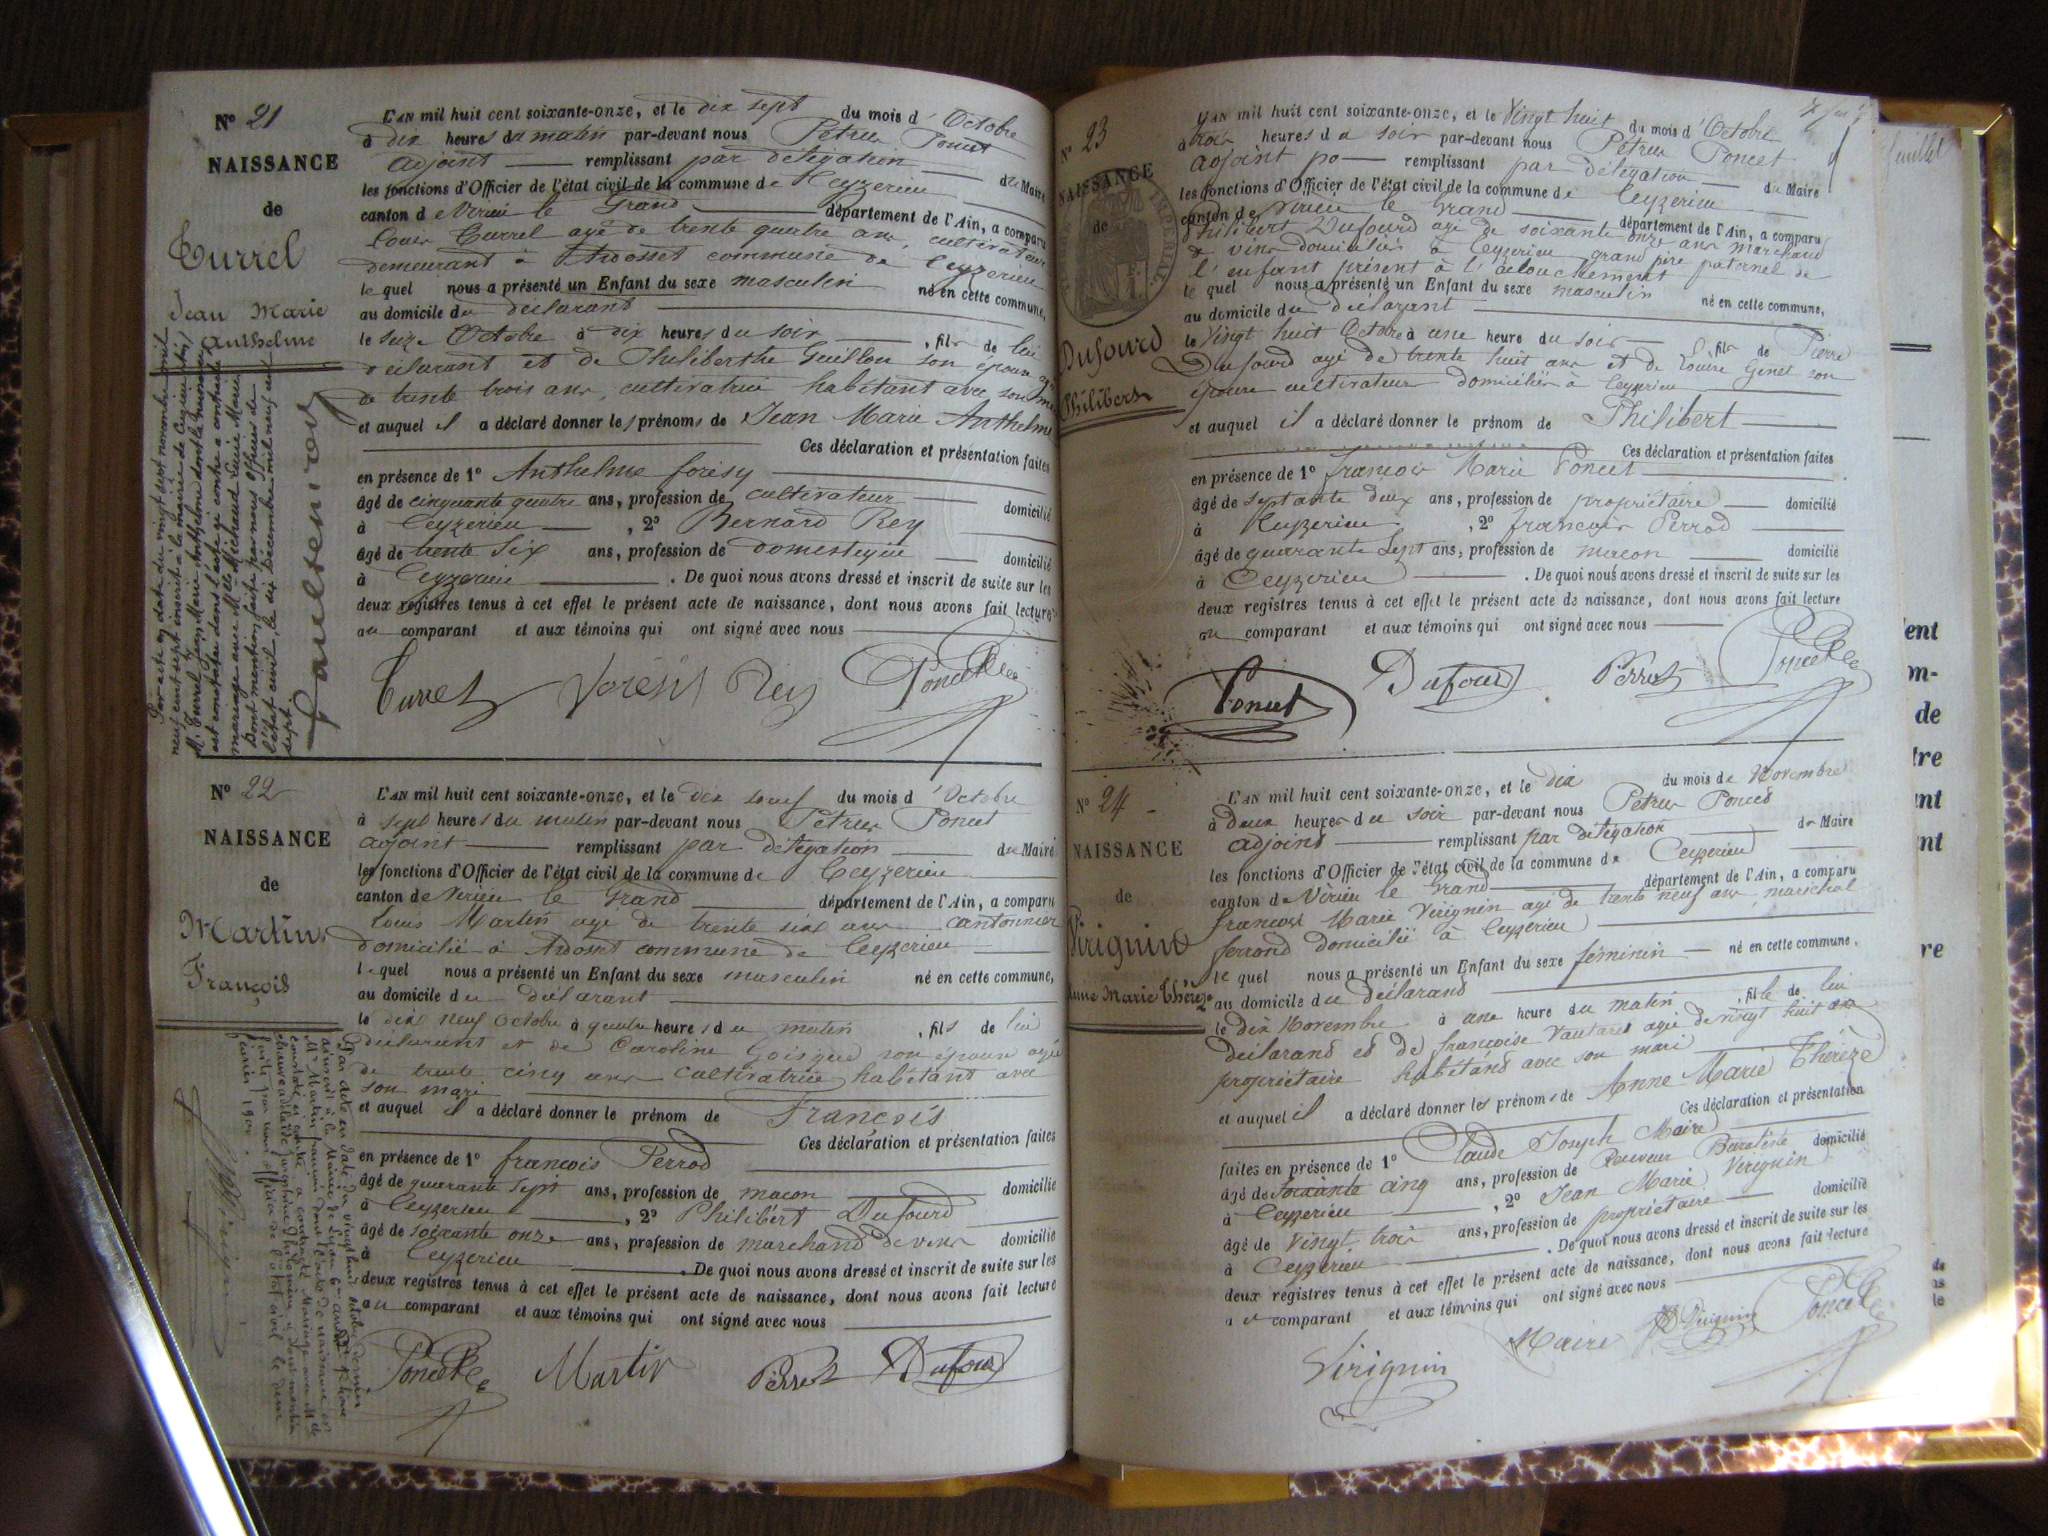 Nº 21
NAISSANCE
de
Turrel
Jean Marie
Anthelme
L'AN mil huit cent soixante-onze, et le dix sept du mois d'Octobre
à dix heures du matin par-devant nous Petrus Poncet
adjoint remplissant par délégation du Maire
les fonctions d'Officier de l'état civil de la commune de Ceyzerieu
canton de Virieu le Grand département de l'Ain, a comparu
Louis Turrel agé de trente quatre ans, cultivateur
demeurant à Ardosset commune de Ceyzerieu
le quel nous a présenté un Enfant du sexe masculin né en cette commune,
au domicile du déclarant
le seize Octobre à dix heures du soir, fils de lui
déclarant et de Philiberthe Guillon son épouse agée
de trente trois ans, cultivatrice habitant avec son mari
et auquel il a déclaré donner les prénoms de Jean Marie Anthelme
Ces déclaration et présentation faites
en présence de 1º Anthelme forésy
âgé de cinquante quatre ans, profession de cultivateur domicilié
à Ceyzerieu, 2º Bernard Rey
âgé de trente Six ans, profession de domestique domicilié
à Ceyzerieu. De quoi nous avons dressé et inscrit de suite sur les
deux registres tenus à cet effet le présent acte de naissance, dont nous avons fait lecture
au comparant et aux témoins qui ont signé avec nous
Turrel Forésy Rey Poncet
Par acte en date du vingt sept novembre mil
neuf cent sept inscrit à la mairie de
M. Turrel Jean Marie Anthelme dont la naissance
est constatée dans l'acte ci contre a contracté
mariage avec Melle Michaud Lucie Marie
Dont mention faite par nous Officier de
l'état civil, le dix Décembre mil neuf cent
sept.
Nº 22
NAISSANCE
de
Martin
François
L'AN mil huit cent soixante-onze, et le dix neuf du mois d'Octobre
à sept heures du matin par-devant nous Petrus Poncet
adjoint remplissant par délégation du Maire
les fonctions d'Officier de l'état civil de la commune de Ceyzerieu
canton de Virieu le Grand département de l'Ain, a comparu
Louis Martin agé de trente six ans cantonnier
domicilié à Ardosset commune de Ceyzerieu
le quel nous a présenté un Enfant du sexe masculin né en cette commune,
au domicile du déclarant
le dix neuf Octobre à quatre heures du matin, fils de lui
déclarant et de Caroline son épouse agée
de trente cinq ans cultivatrice habitant avec
son mari
et auquel il a déclaré donner le prénom de François
Ces déclaration et présentation faites
en présence de 1º françois Perrod
âgé de quarante sept ans, profession de maçon domicilié
à Ceyzerieu, 2º Philibert Dufourd
âgé de soixante onze ans, profession de marchand de vins domicilié
à Ceyzerieu. De quoi nous avons dressé et inscrit de suite sur les
deux registres tenus à cet effet le présent acte de naissance, dont nous avons fait lecture
au comparant et aux témoins qui ont signé avec nous
Poncet Martin Perrod Dufour
Nº 23
NAISSANCE
de
Dufourd
Philibert
L'AN mil huit cent soixante-onze, et le Vingt huit du mois d'Octobre
à trois heures du soir par-devant nous Petrus Poncet
adjoint remplissant par délégation du Maire
les fonctions d'Officier de l'état civil de la commune de Ceyzerieu
canton de Virieu le Grand département de l'Ain, a comparu
Philibert Dufourd agé de soixante onze ans marchand
de vins domicilié à Ceyzerieu grand père paternel de
l'enfant présent à l'acouchement
le quel nous a présenté un Enfant du sexe masculin né en cette commune,
au domicile du déclarant
le Vingt huit Octobre à une heure du soir, fils de Pierre
Dufourd agé de trente huit ans et de Louise Genet son
épouse cultivateurs domiciliés à Ceyzerieu
et auquel il a déclaré donner le prénom de Philibert
Ces déclaration et présentation faites
en présence de 1º françois Marie Poncet
âgé de septante deux ans, profession de propriétaire domicilié
à Ceyzerieu, 2º françois Perrod
âgé de quarante Sept ans, profession de maçon domicilié
à Ceyzerieu. De quoi nous avons dressé et inscrit de suite sur les
deux registres tenus à cet effet le présent acte de naissance, dont nous avons fait lecture
au comparant et aux témoins qui ont signé avec nous
Poncet Dufour Perrod Poncet
Nº 24
NAISSANCE
de
Virignin
Anne Marie Thérèze
L'AN mil huit cent soixante-onze, et le dix du mois de Novembre
à deux heures du soir par-devant nous Petrus Poncet
adjoint remplissant par délégation du Maire
les fonctions d'Officier de l'état civil de la commune de Ceyzerieu
canton de Virieu le Grand département de l'Ain, a comparu
françois Marie Virignin agé de trente neuf ans, maréchal
ferrand domicilié à Ceyzerieu
le quel nous a présenté un Enfant du sexe féminin né en cette commune,
au domicile du déclarand
le dix Novembre à une heure du matin, fille de lui
déclarand et de françoise Vautaret agée de vingt huit ans
propriétaire habitand avec son mari
et auquel il a déclaré donner les prénoms de Anne Marie Thérèze
Ces déclaration et présentation
faites en présence de 1º Claude Joseph Maire
âgé de soixante cinq ans, profession de Receveur Buraliste domicilié
à Ceyzerieu, 2º Jean Marie Virignin
âgé de Vingt trois ans, profession de propriétaire domicilié
à Ceyzerieu. De quoi nous avons dressé et inscrit de suite sur les
deux registres tenus à cet effet le présent acte de naissance, dont nous avons fait lecture
au comparant et aux témoins qui ont signé avec nous
Virignin Maire Virignin Poncet